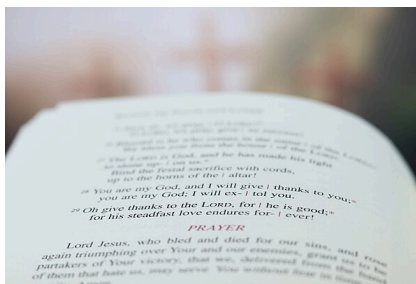 27 The LORD is God, and he has made his light
to shine up- | on us.*
Bind the festal sacrifice with cords,
up to the horns of the | altar!
28 You are my God, and I will give | thanks to you;*
you are my God; I will ex- | tol you.
29 Oh give thanks to the LORD, for | he is good;*
for his steadfast love endures for- | ever!
PRAYER
Lord Jesus, who bled and died for our sins, and rose
again triumphing over Your and our enemies, grant us to be
partakers of Your victory, that we, delivered from the hand
of them that hate us, may serve You without fear in